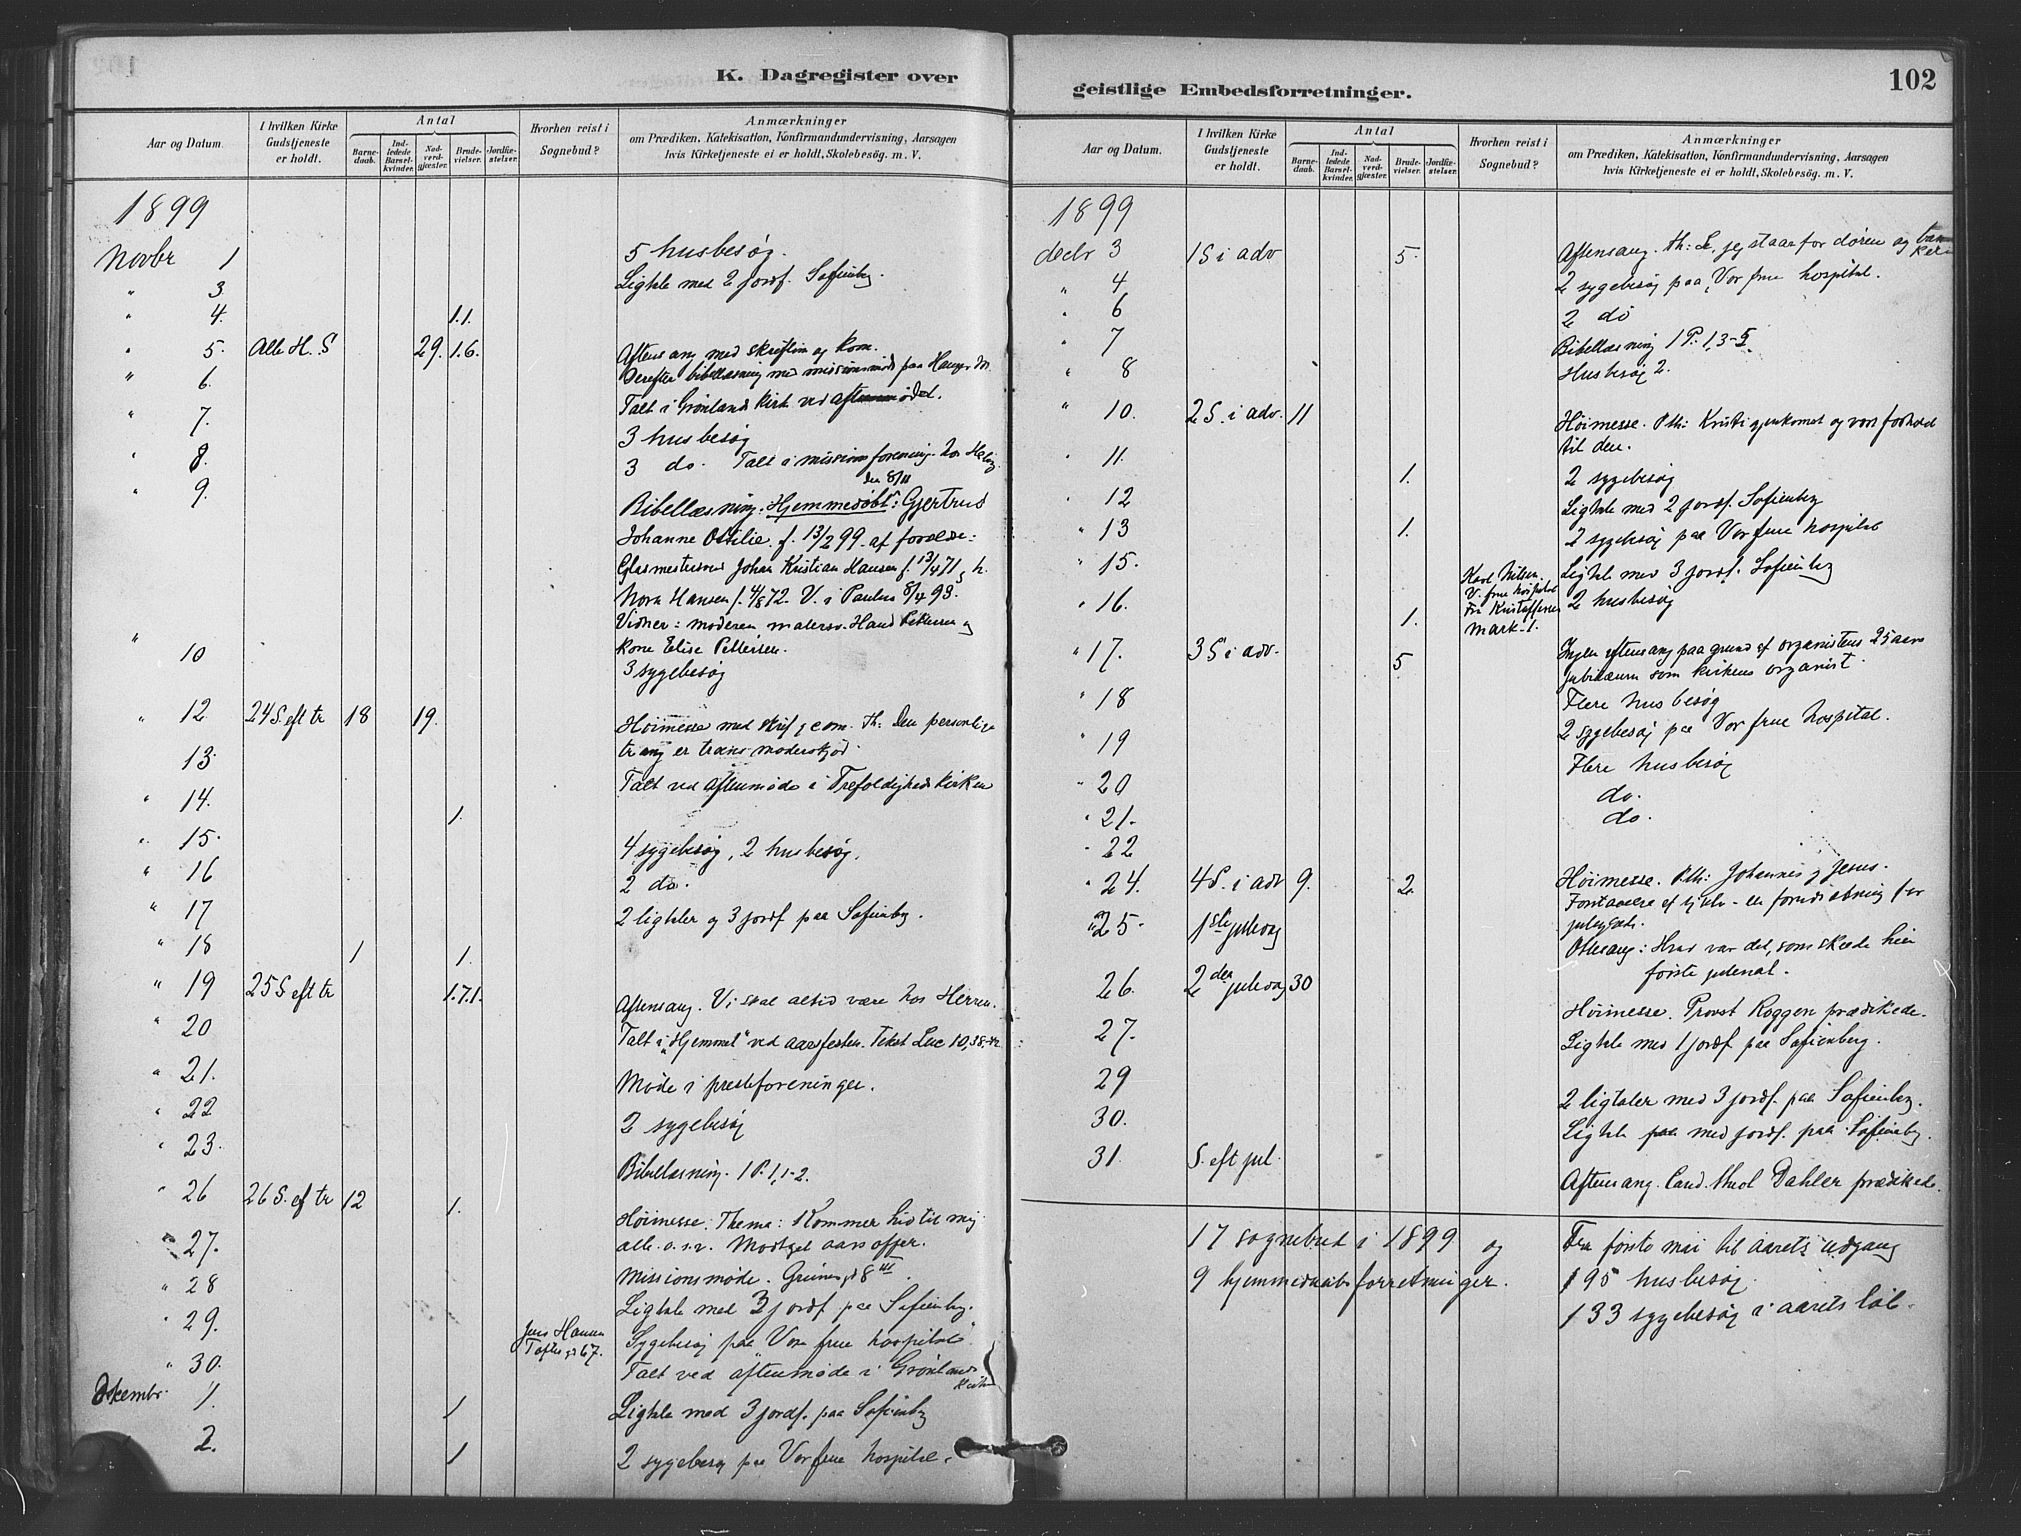 K. Dagregister over
Aar og Datum.
I hvilken Kirke Gudstjeneste er holdt.
Antal
Barnedaab.
Indledede Barselkvinder.
Nadverdgjæster.
Brudevielser.
Jordfæstelser.
Hvorhen reist i Sognebud?
Anmærkninger
om Prædiken, Katekisation, Konfirmandundervisning, Aarsagen
hvis Kirketjeneste ei er holdt, Skolebesög. m. V.
1899
Novbr 1 5 husbesøg.
" 3 Ligtale med 2 jordf. Sofienbg.
" 4. 1.1.
" 5. Alle H. S 29. 1.6. Aftensang med skriftm og kom.
Derefter bibellæsning med missionsmøde paa
" 6. Talt i Grønlands kirk ved aftenmødet.
" 7. 3 husbesøg
" 8. 3 do. Talt i missionsforening hos
den 8/11
" 9. Bibellæsning. Hjemmedøbt: Gjertrud
Johanne Ottilie f. 13/2 99. af foreldre:
Glasmestersvend Johan Kristian Hansen f. 13/4 71 og h.
Nora Hansen f. 4/8 72. V. i Paulus 8/4 93.
Vidner: moderen malersv. Hans Pettersen og
kone Elise Pettersen.
" 10 3 sygebesøg
" 12 24 S. eft tr 18 19. Høimesse med skrif og com. Th: Den personlige
trang er troens moderskjød.
13. Talt ved aftenmøde i Trefoldighedskirken
" 14. 1.
" 15. 4 sygebesøg, 2 husbesøg.
" 16 2 do.
" 17 2 ligtaler og 3 jordf paa Sofienbg.
" 18 1 1.
" 19 25 S eft tr 1.7.1. Aftensang. Vi skal altid være hos Herren.
" 20 Talt i „Hjemmet" ved aarsfesten. Tekst Luc 10,38-42
" 21. Møde i presteforeningen.
" 22 2 sygebesøg
" 23. Bibellæsning. 1 P. 1,1-2.
" 26 26 S. ef tr 12 1. Høimesse. Thema: Kommer hid til mig
alle o.s.v. Modtget aarsoffer.
" 27. Missionsmøde. Grünersgd 8 III.
" 28 Ligtale med 3 jordf paa Sofienbg.
" 29. Jens Hansen Toftesgd 67. Sygebesøg paa Vor frue hospital.
" 30. Talt ved aftenmøde i Grønlands Kirke
Dekembr. 1. 1 Ligtale med 3 jordf. paa Sofienbg
2. 1 2 sygebesøg paa Vor frue hospital.
geistlige Embedsforretninger.
102
Aar og Datum.
I hvilken Kirke Gudstjeneste er holdt.
Antal
Barnedaab.
Indledede Barselkvinder.
Nadverdgjæster.
Brudevielser.
Jordfæstelser.
Hvorhen reist i Sognebud?
Anmærkninger
om Prædiken, Katekisation, Konfirmandundervisning, Aarsagen
hvis Kirketjeneste ei er holdt, Skolebesög. m. V.
1899
decbr 3 1 S i adv 5. Aftensang. Th: Se, jeg staar for døren og banker
" 4 2 sygebesøg paa Vor frue hospital.
" 6 2 do
" 7 Bibellæsning 1 P. 1,3-5
" 8 Husbesøg 2.
" 10. 2 S. i adv. 11 Høimesse. Pth: Kristi gjenkomst og vort forhold
til den.
" 11. 1. 2 sygebesøg
" 12 Ligtale med 2 jordf. Sofienbg
" 13 1. 2 sygebesøg paa Vor frue hospital
" 15. Karl Nilsen. V. frue hospital Ligtale med 3 jordf. Sofienbg
" 16. 1. Fru Kristoffersen Mark. 1. 2 husbesøg
" 17. 3 S i adv. 5 Ingen aftensang paa grund af organistens 25 aars
jubilæum som kirkens organist.
" 18 Flere husbesøg
2 sygebesøg paa Vor frue hospital.
" 19 Flere husbesøg
" 20 do.
" 21. do.
" 22
" 24. 4 S. i adv 9. 2. Høimesse. Pth: Johannes og Jesus.
Forstaaelse af sig selv - en forudsætning for
juleglæde.
" 25. 1ste juledag Ottesang: Hvad var det, som skede hin
første julenat.
26. 2den juledag 30 Høimesse. Provst Roggen prædikede.
27. Ligtale med 1 jordf paa Sofienberg.
29 2 ligtaler med 3 jordf. paa Sofienbg.
30. Ligtale med jordf. paa Sofienbg.
31. S. eft jul. Aftensang. Cand. theol Dahler prædikede.
17 sognebud i 1899 og Fra første mai til aarets udgang
9 hjemmedaabsforretninger. 195 husbesøg.
133 sygebesøg i aarets løb.